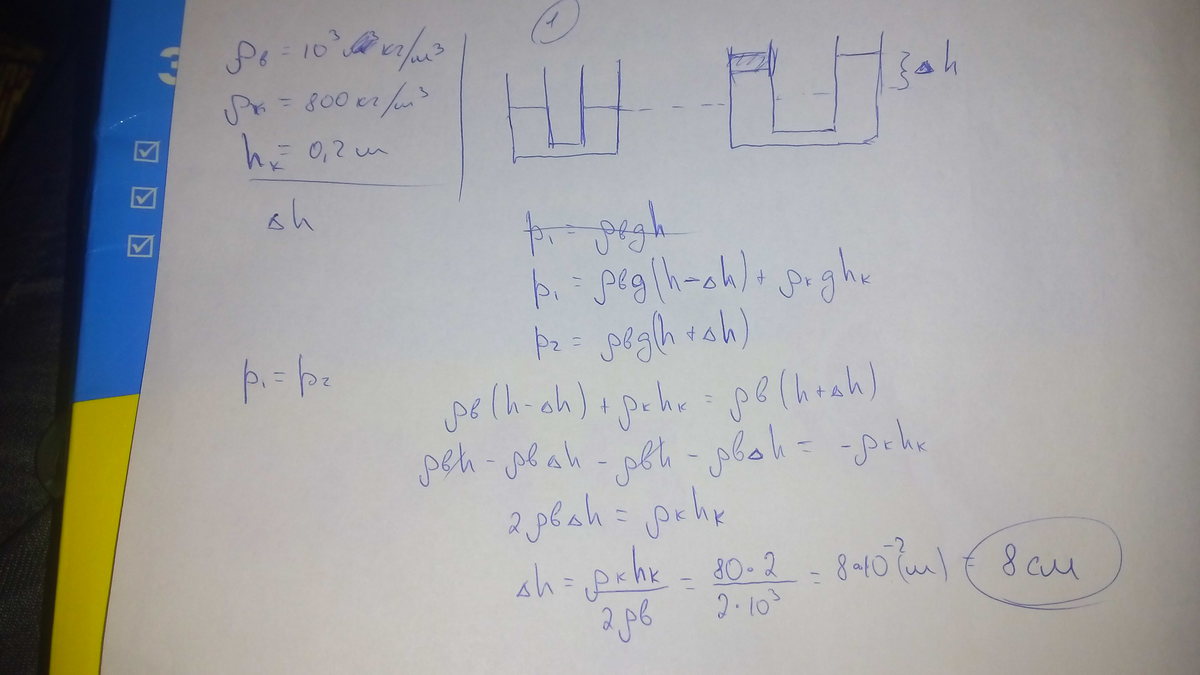 1
ρв = 10³ кг/м³
ρк = 800 кг/м³
hк = 0,2 м
Δh
Δh
p₁ = ρвgh
p₁ = ρвg(h-Δh) + ρкghк
p₂ = ρвg(h+Δh)
p₁ = p₂
ρв(h-Δh) + ρкhк = ρв(h+Δh)
ρвh - ρвΔh - ρвh - ρвΔh = -ρкhк
2ρвΔh = ρкhк
Δh = ρкhк/2ρв = 80·2/2·10³ = 8·10⁻²(м) = 8 см